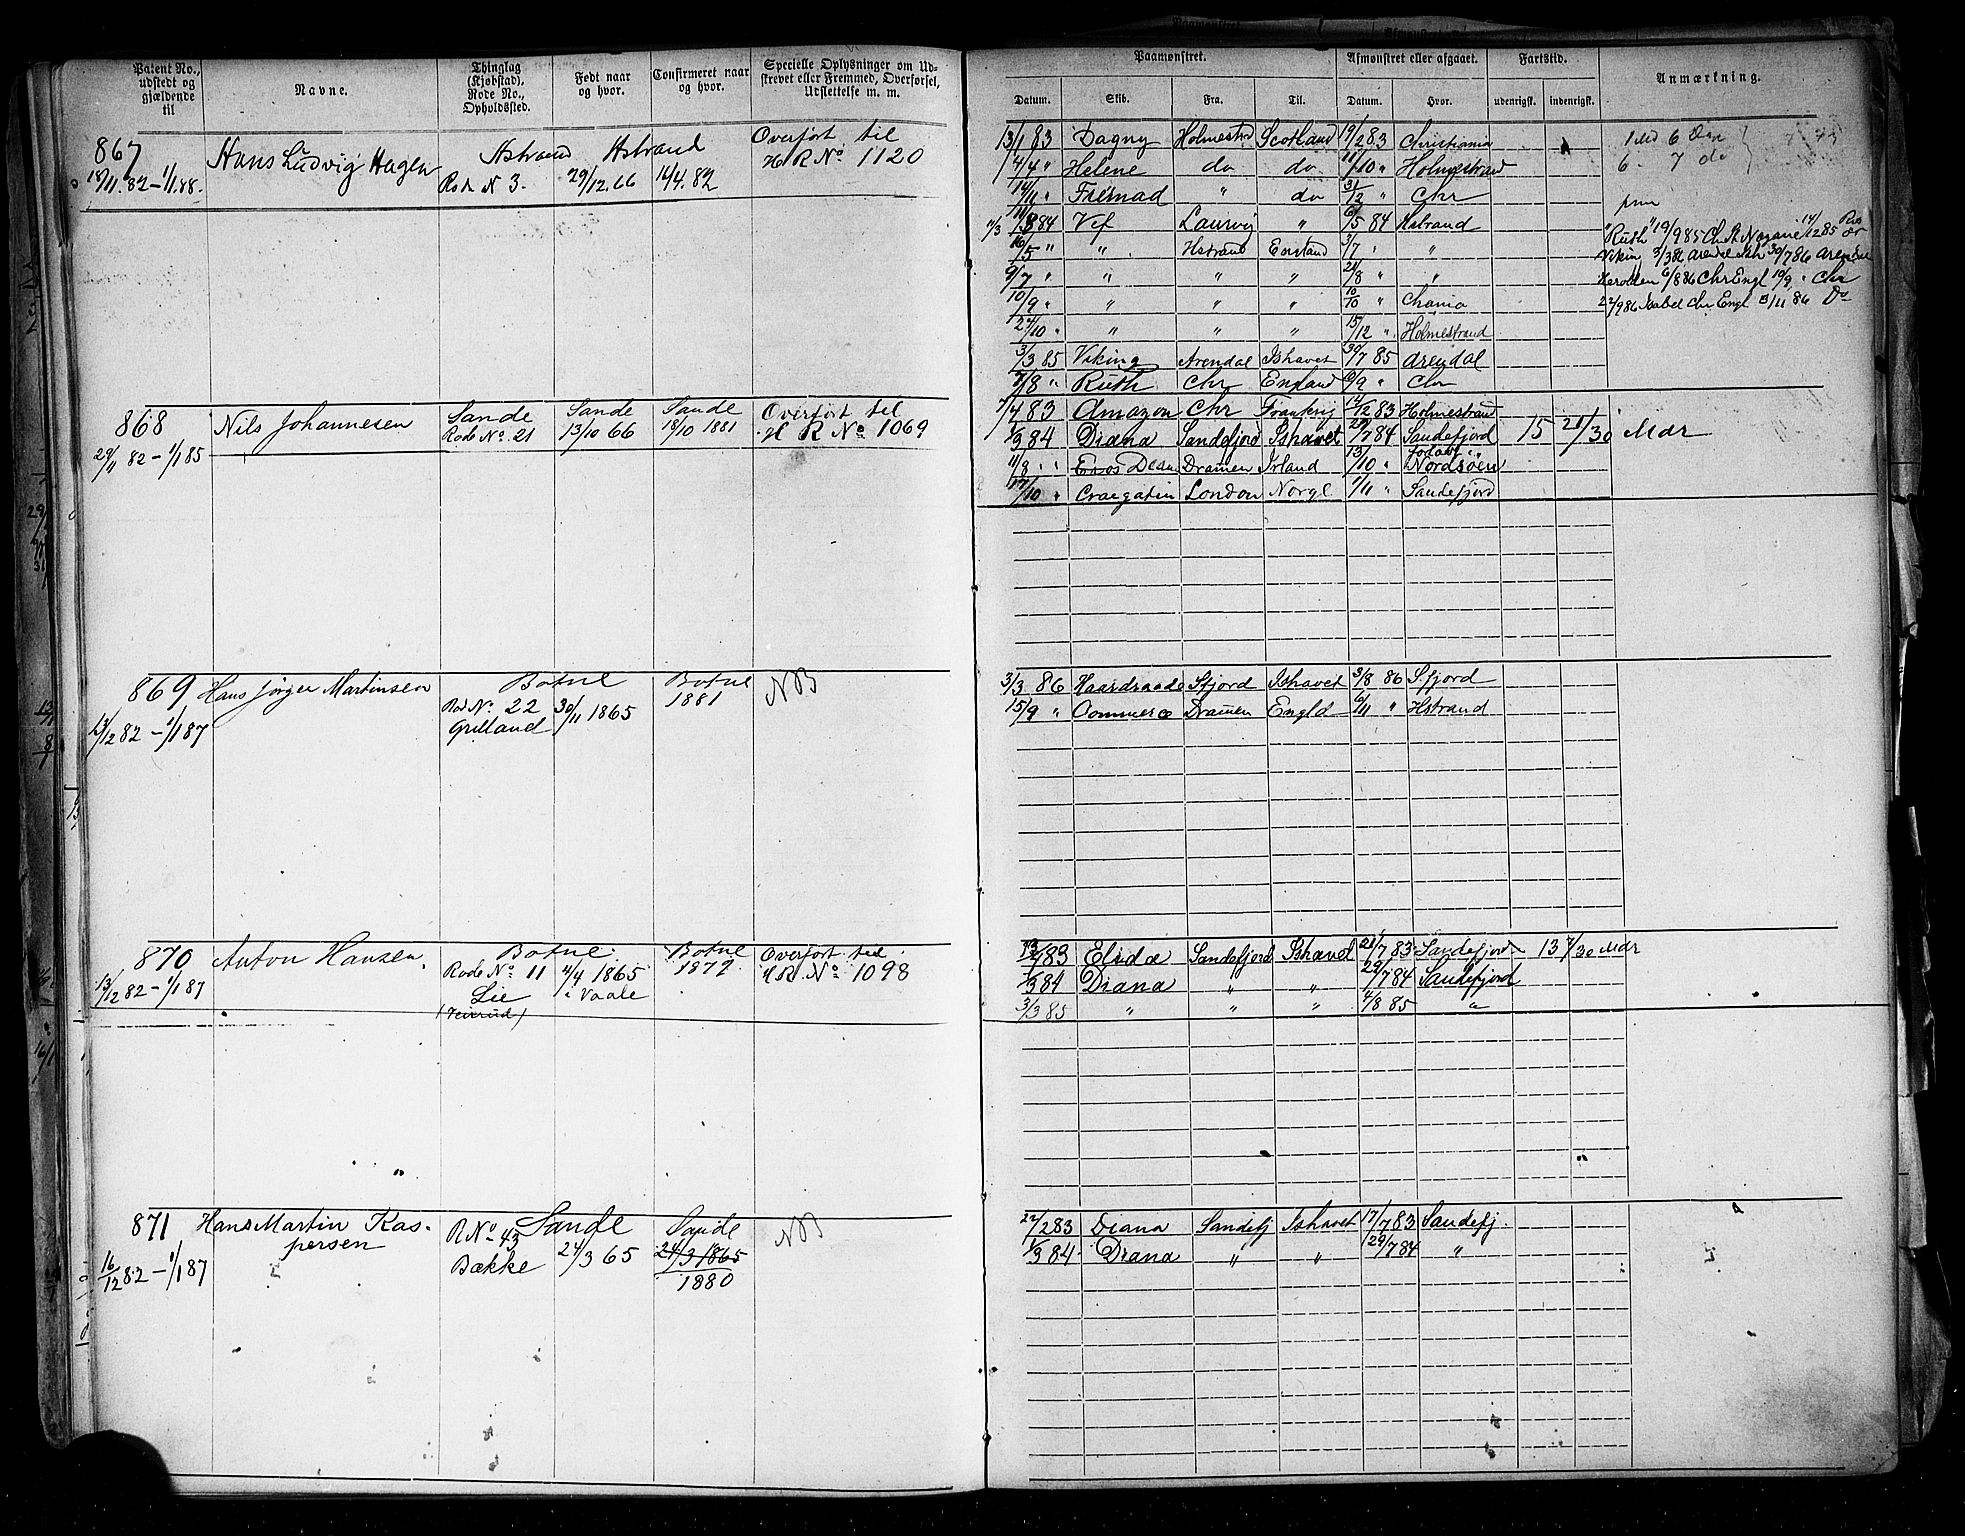 Patent No., udstedt og gjældende til
Navne.
Thinglag (Kjøbstad), Rode No., Opholdssted.
Født naar og hvor.
Confirmeret naar og hvor.
Specielle Oplysninger om Udskrevet eller Fremmed, Overførsel, Udslettelse m. m.
Paamønstret.
Afmønstret eller afgaaet.
Fartstid.
Anmærkning.
Datum.
Skib.
Fra.
Til.
Datum.
Hvor.
udenrigsk.
indenrigsk.
867
18/11.82-1/1.88.
Hans Ludvig Hagen
Hstrand
Rode N 3.
Hstrand
29/12.66
16/4.82
Overført til
H R No 1120
13/1 83 Dagny Holmestrd Scotland 19/2 83 Christiania
4/4 " Helene do do 11/10 " Holmestrand
14/11 " " do 31/12 " Chr
84 Laurvig " 6/5 84 Hstrand
16/5 " " Hstrand England 3/7 " "
9/7 " " " " 21/8 " "
10/9 " " " " 10/10 " Chania
24/10 " " " " 15/12 " Holmestrand
3/3 85 Viking Arendal Ishavet 30/7 85 Arendal
7/8 " Ruth Chr England 6/9 " Chr
1 Md 6 Dge
6 - 7 do
"Ruth" 19/9 85
Viking 3/3 86 Arendal Ish 30/7 86 Arendal
6/8 86 Chr Engl 19/9 " Chr
22/9 86 Isabel Chr Engl 3/11 86 Do
868
29/11 82-1/1 85
Nils Johannesen
Sande
Rode No. 21
Sande
13/10 66
Sande
18/10 1881
Overført til
H R No 1069
7/4 83 Amazon Chr Frankrig 14/12 83 Holmestrand
1/3 84 Diana Sandefjord Ishavet 29/7 84 Sandefjord 15 21/30 Mdr
11/8 " " Dramen Irland 13/10 " forladt i Nordsøen
17/10 " Craigatin London Norge 1/11 " Sandefjord
869
13/12 82-1/1 87
Hans Jørgen Martinsen
Botne
Rode No. 22
Grelland
30/11 1865
Botne
1881
NB
3/3 86 Haardraade Sfjord Ishavet 3/8 86 Sfjord
15/9 " Commerce Dramen Engld 6/11 " Hstrand
870
13/12 82-1/1 87
Anton Hansen.
Botne.
Rode No 11
Lie
(Veierud)
4/4 1865
i Vaale
Botne
1879.
Overført til
H R No 1098
83 Elida Sandefjord Ishavet 21/7 83 Sandefjord 13 7/30 Mdr
1/3 84 Diana " " 29/7 84 Sandefjord
3/3 85 " " " 4/8 85 "
871
16/12 82-1/1 87
Hans Martin Kaspersen
R No 43
Bække
Sande
24/3 65
Sande
24/3 1865
1880
NB
22/2 83 Diana Sandefj Ishavet 17/7 83 Sandefj.
1/3 84 Diana " " 29/7 84 "